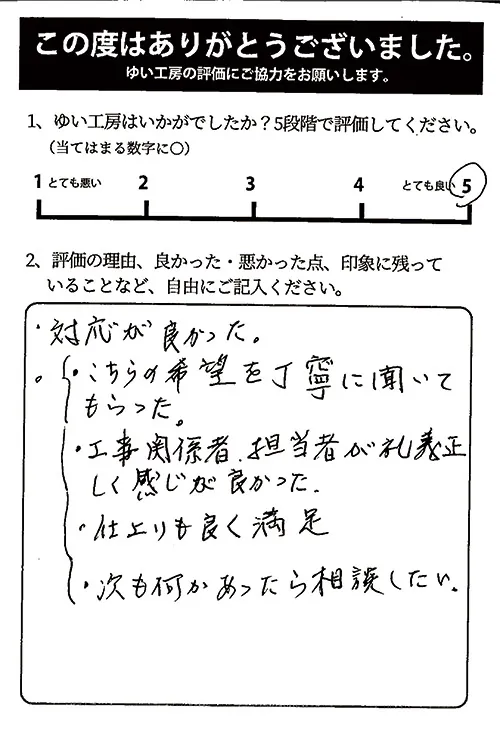 この度はありがとうございました。
ゆい工房の評価にご協力をお願いします。
1、ゆい工房はいかがでしたか？5段階で評価してください。
（当てはまる数字に○）
1 とても悪い 2 3 4 とても良い 5
2、評価の理由、良かった・悪かった点、印象に残って
いることなど、自由にご記入ください。
・対応が良かった。
・こちらの希望を丁寧に聞いて
もらった。
・工事関係者、担当者が礼義正
しく感じが良かった。
・仕上りも良く満足
・次も何かあったら相談したい。